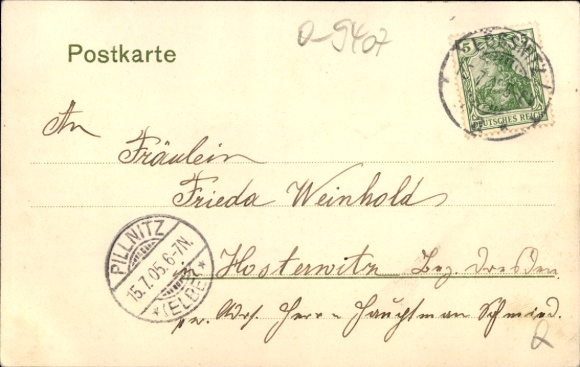 Postkarte
O-9407
5
DEUTSCHES REICH
An
Fräulein
Frieda Weinhold
in Hosterwitz Bez. Dresden
pr. Adrs. Herrn Hauptman Schmied.
PILLNITZ
15.7.05. 6-7N.
*(ELBE)*